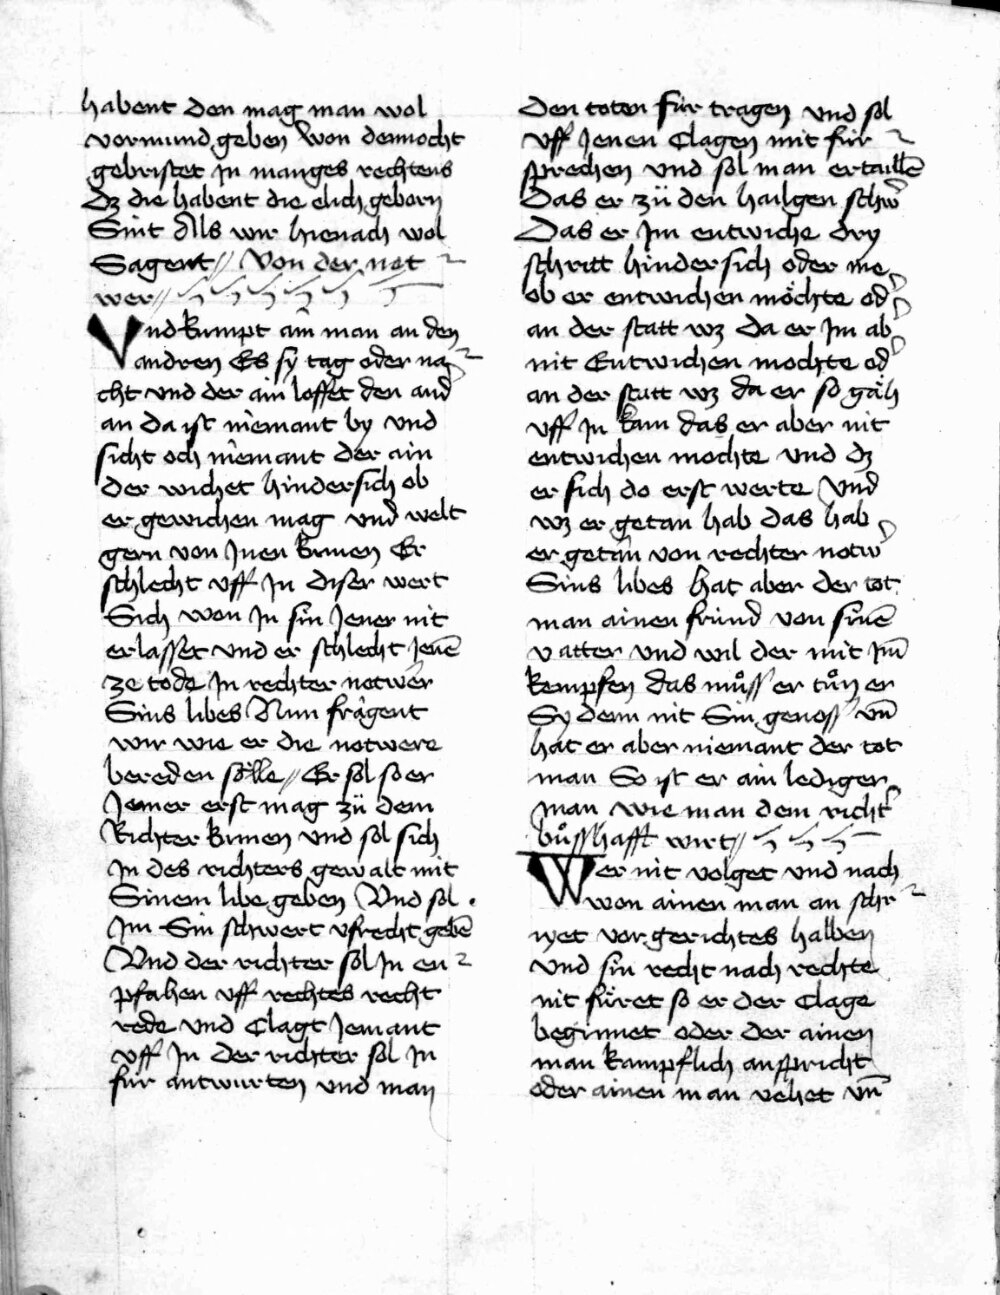 habent den mag man wol
vormund geben Won dennocht
gebristet jn manges rechtens
Dz die habent die elich geborn
Sint Als wir hienach wol
Sagent // Von der not
wer //
Vnd kumpt ain man an den
andren Es sy tag oder na
cht vnd der ain loffet den and̕
an da ist niemant by vnd
sicht och niemant der ain
der wichet hindersich ob
er gewichen mag vnd welt
gern von Jnen kumen Er
schlecht vff Jn diser wert
Sich won Jn sin Jener nit
erlasset vnd er schlecht Jenē
ze tode Jn rechter notwer
Sins libes Nun fragent
wir wie er die notwere
bereden sölle // Er sol so er
Jemer erst mag zü dem
Richter kumen vnd sol sich
Jn des richters gewalt mit
Sinem libe geben Vnd sol
Jm Sin schwert vfrecht gebē
Vnd der richter sol Jn en
pfahen vff rechtes recht
rede vnd Clagt Jemant
vff Jn der richter sol Jn
für antwurten vnd man
den toten für tragen vnd sol
vff Jenen Clagen mit für
sprechen vnd sol man ertaillē
Das er zü den hailgen schw̕
Das er Jm entwiche dry
schritt hinder sich oder me
ob er entwichen möchte od̕
an der statt wz da er Jm ab
nit Entwichen mochte od̕
an der statt wz da er so gäh
vff Jn kam das er aber nit
entwichen mochte vnd dz
er sich do erst werte Vnd
wz er getan hab das hab
er getan von rechter notw̕
Sins libes hat aber der tot
man ainen fründ von sinē
vatter vnd wil der mit Jm̄
kempfen das můss er tůn er
Sy denn nit Sin genoss vn̄
hat er aber niemant der tot
man So ist er ain lediger
man wie man dem richt̕
bůsshafft wirt //
Wer nit volget vnd nach
won ainen man an schr
iyet vor gerichtes halben
vnd sin recht nach rechte
nit füret so er der Clage
beginnet oder der ainen
man kampflich anspricht
oder ainen man vehet vn̄